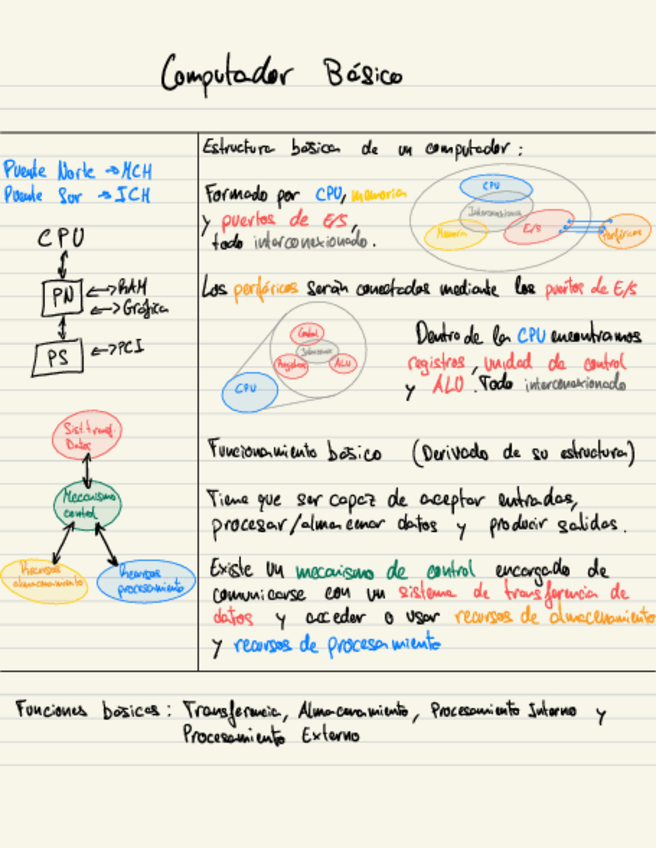 Computador Básico
Puente Norte → MCH
Puente Sur → ICH
CPU
PN
RAM
Gráfica
PS
PCI
Sist. transf.
Datos
Mecanismo
control
Recursos
almacenamiento
Recursos
procesamiento
Estructura básica de un computador:
Formado por CPU, memoria
y puertos de E/S,
todo interconexionado.
CPU
Interconexiones
Memoria
E/S
Periféricos
Los periféricos serán conectados mediante los puertos de E/S
Control
Interconex
Registros
ALU
CPU
Dentro de la CPU encontramos
registros, unidad de control
y ALU. Todo interconexionado
Funcionamiento básico (Derivado de su estructura)
Tiene que ser capaz de aceptar entradas,
procesar/almacenar datos y producir salidas.
Existe un mecanismo de control encargado de
comunicarse con un sistema de transferencia de
datos y acceder o usar recursos de almacenamiento
y recursos de procesamiento
Funciones básicas: Transferencia, Almacenamiento, Procesamiento Interno y
Procesamiento Externo